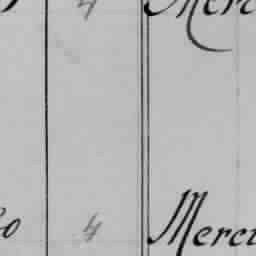 4 Merc
o 4 Merc